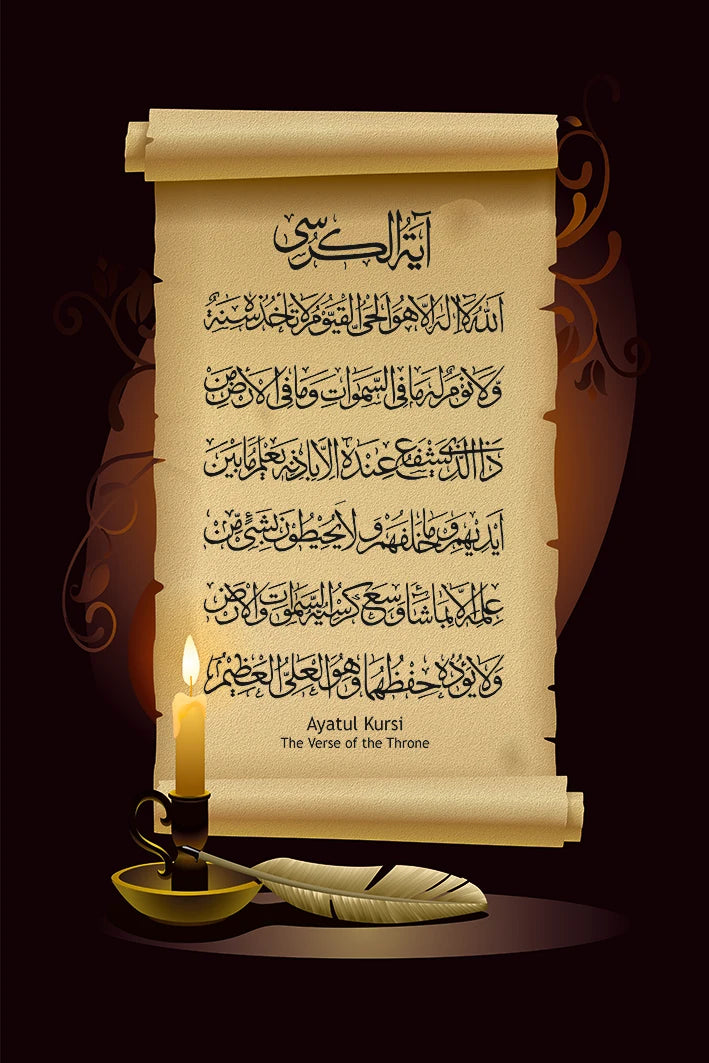 آيَةُ الكُرسِي
اَللّٰهُ لَآ اِلٰهَ اِلَّا هُوَ الحَىُّ القَيُّوْمُ لَا تَأخُذُهٗ سِنَةٌ
وَّلَا نَوْمٌ لَهٗ مَا فِي السَّمٰوَاتِ وَمَا فِي الْاَرْضِ مَنْ
ذَا الَّذِىْ يَشْفَعُ عِنْدَهٗ اِلَّا بِاِذْنِهٖ يَعْلَمُ مَا بَيْنَ
اَيْدِيْهِمْ وَمَا خَلْفَهُمْ وَلَا يُحِيْطُوْنَ بِشَىْءٍ مِّنْ
عِلْمِهٖ اِلَّا بِمَا شَآءَ وَسِعَ كُرْسِيُّهُ السَّمٰوَاتِ وَالْاَرْضَ
وَلَا يَؤُدُهٗ حِفْظُهُمَا وَهُوَ الْعَلِىُّ الْعَظِيْمُ
Ayatul Kursi
The Verse of the Throne